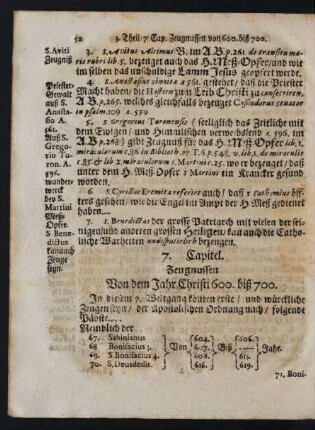 52 3. Theil / 7 Cap. Zeugnussen von 600. biß 700.
S. Aviti Zeugniß
3. S. Avitus Alcimus B. im A B. p. 261. de transitu ma-
ris rubri lib. 5. bezeuget auch das H. Meß-Opfer / und wie
im selben das unschuldige Lamm Jesus geopfert werde.
Priester-Gewalt auß S. Anastasio A. 561.
4. S. Anastasius Sinaita gestehet / daß die Priester
Macht haben / die Hostien zum Leib Christi zu consecriren,
A B. p. 265. welches gleichfalls bezeuget Cassiodorus senator
in psalm. 109 A. 559
Auß S. Gregorio Turon. A. 596. wunderwerck bey S. Martini Meß-Opfer.
5. S. Gregorius Turonensis (seeliglich das Zeitliche mit
dem Ewigen / und Himmlischen verwechslend A. 596. im
A B. p. 283) gibt Zeugnuß für das H. Meß-Opfer lib. 1.
miraculorum c. 86 in Biblioth. PP T. 6 p. 548, & lib. 1. de miraculis
c. 85 & lib 2. miraculorum S. Martini c. 25. wo er bezeuget / daß
unter dem H. Meß Opfer S Martini ein Krancker gesund
worden.
6. S. Cyrillus Eremita referirt auch / daß S Euthymius öff-
ters gesehen / wie die Engel im Ampt der H Meß gedienet
haben.
S Benedictus kan auch Zeuge seyn.
7. S. Benedictus der grosse Patriarch mit vielen der sei-
nigen / und anderen grossen Heiligen / kan auch die Catho-
lische Warheiten bezeugen.
7. Capitel.
Zeugnussen
Von dem Jahr Christi 600. biß 700.
In diesem 7. Weltgang konten erste / und würckliche
Zeugen seyn / der Apostolischen Ordnung nach / folgende
Päbste.
Nemblich der
67. Sabinianus Von 604. Biß 606. Jahr.
68 Bonifacius 3. 607.
69. S. Bonifacius 4. 608. 615.
70. S. Deusdedit. 616. 619.
71. Boni-